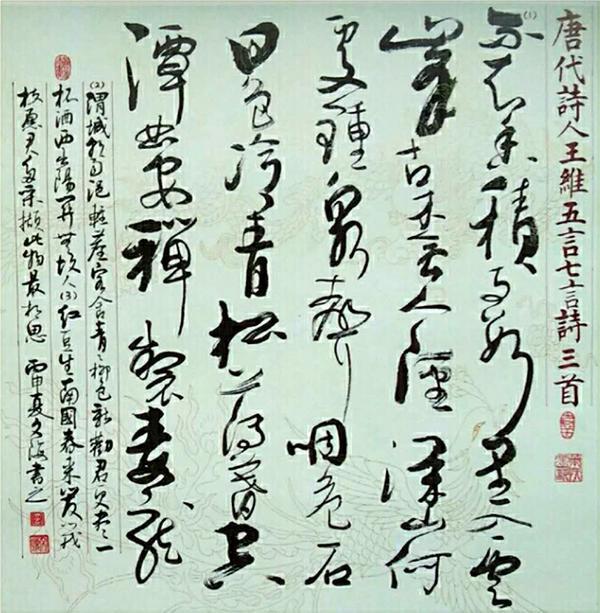 唐代詩人王維五言七言詩三首
(1) 不知香積寺數里入雲
峯古木無人徑深山何
處鍾泉聲咽危石
日色冷青松薄暮空
潭曲安禪製毒龍
(2) 渭城朝雨浥輕塵客舍青々柳色新勸君更盡一
杯酒西出陽關無故人 (3) 紅豆生南國春来發幾
枝愿君多采擷此物最相思 丙申夏 海書之